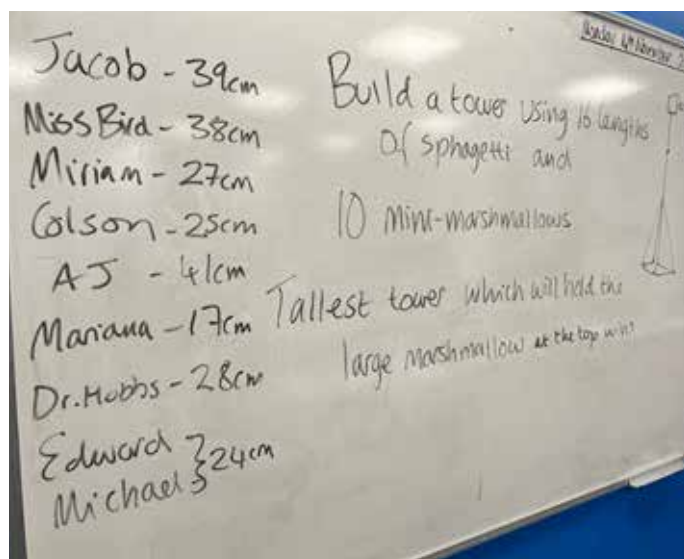 Jacob - 39cm
Miss Bird - 38cm
Miriam - 27cm
Colson - 25cm
AJ - 41cm
Mariana - 17cm
Dr. Hobbs - 28cm
Edward } 24cm
Michael
Monday 4th November
Build a tower using 16 lengths
of sphagetti and
10 mini-marshmallows
Tallest tower which will hold the
large marshmallow at the top wins